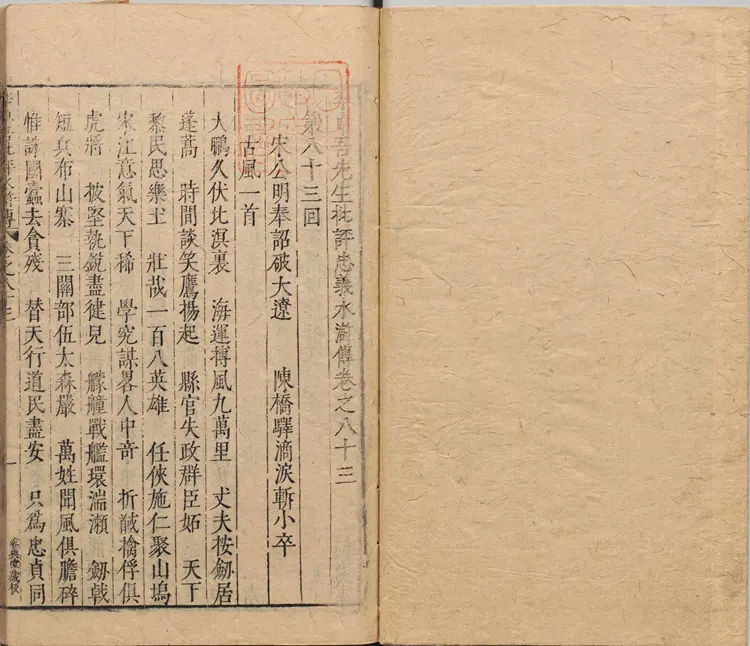 李卓吾先生批評忠義水滸傳卷之八十三
第八十三回
宋公明奉詔破大遼 陳橋驛滴淚斬小卒
古風一首
大鵬久伏北溟裏 海運摶風九萬里 丈夫按劒居
蓬蒿 時間談笑鷹揚起 縣官失政群臣妬 天下
黎民思樂土 壯哉一百八英雄 任俠施仁聚山塢
宋江意氣天下稀 學究謀畧人中竒 折馘擒俘俱
虎將 披堅執銳盡健兒 艨艟戰艦環湍瀨 劒戟
短兵布山寨 三關部伍太森嚴 萬姓聞風俱膽碎
惟誅國蠹去貪殘 替天行道民盡安 只為忠貞同
卷之八十三
一
容與堂藏板